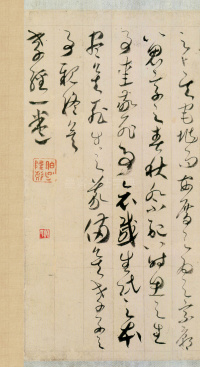 之卜其宅兆而安厝之為之宗廟
以鬼享之春秋祭祀以時思之生
事愛敬死事哀慼生民之本
盡矣死生之義備矣孝子之
事親終矣
孝經一卷